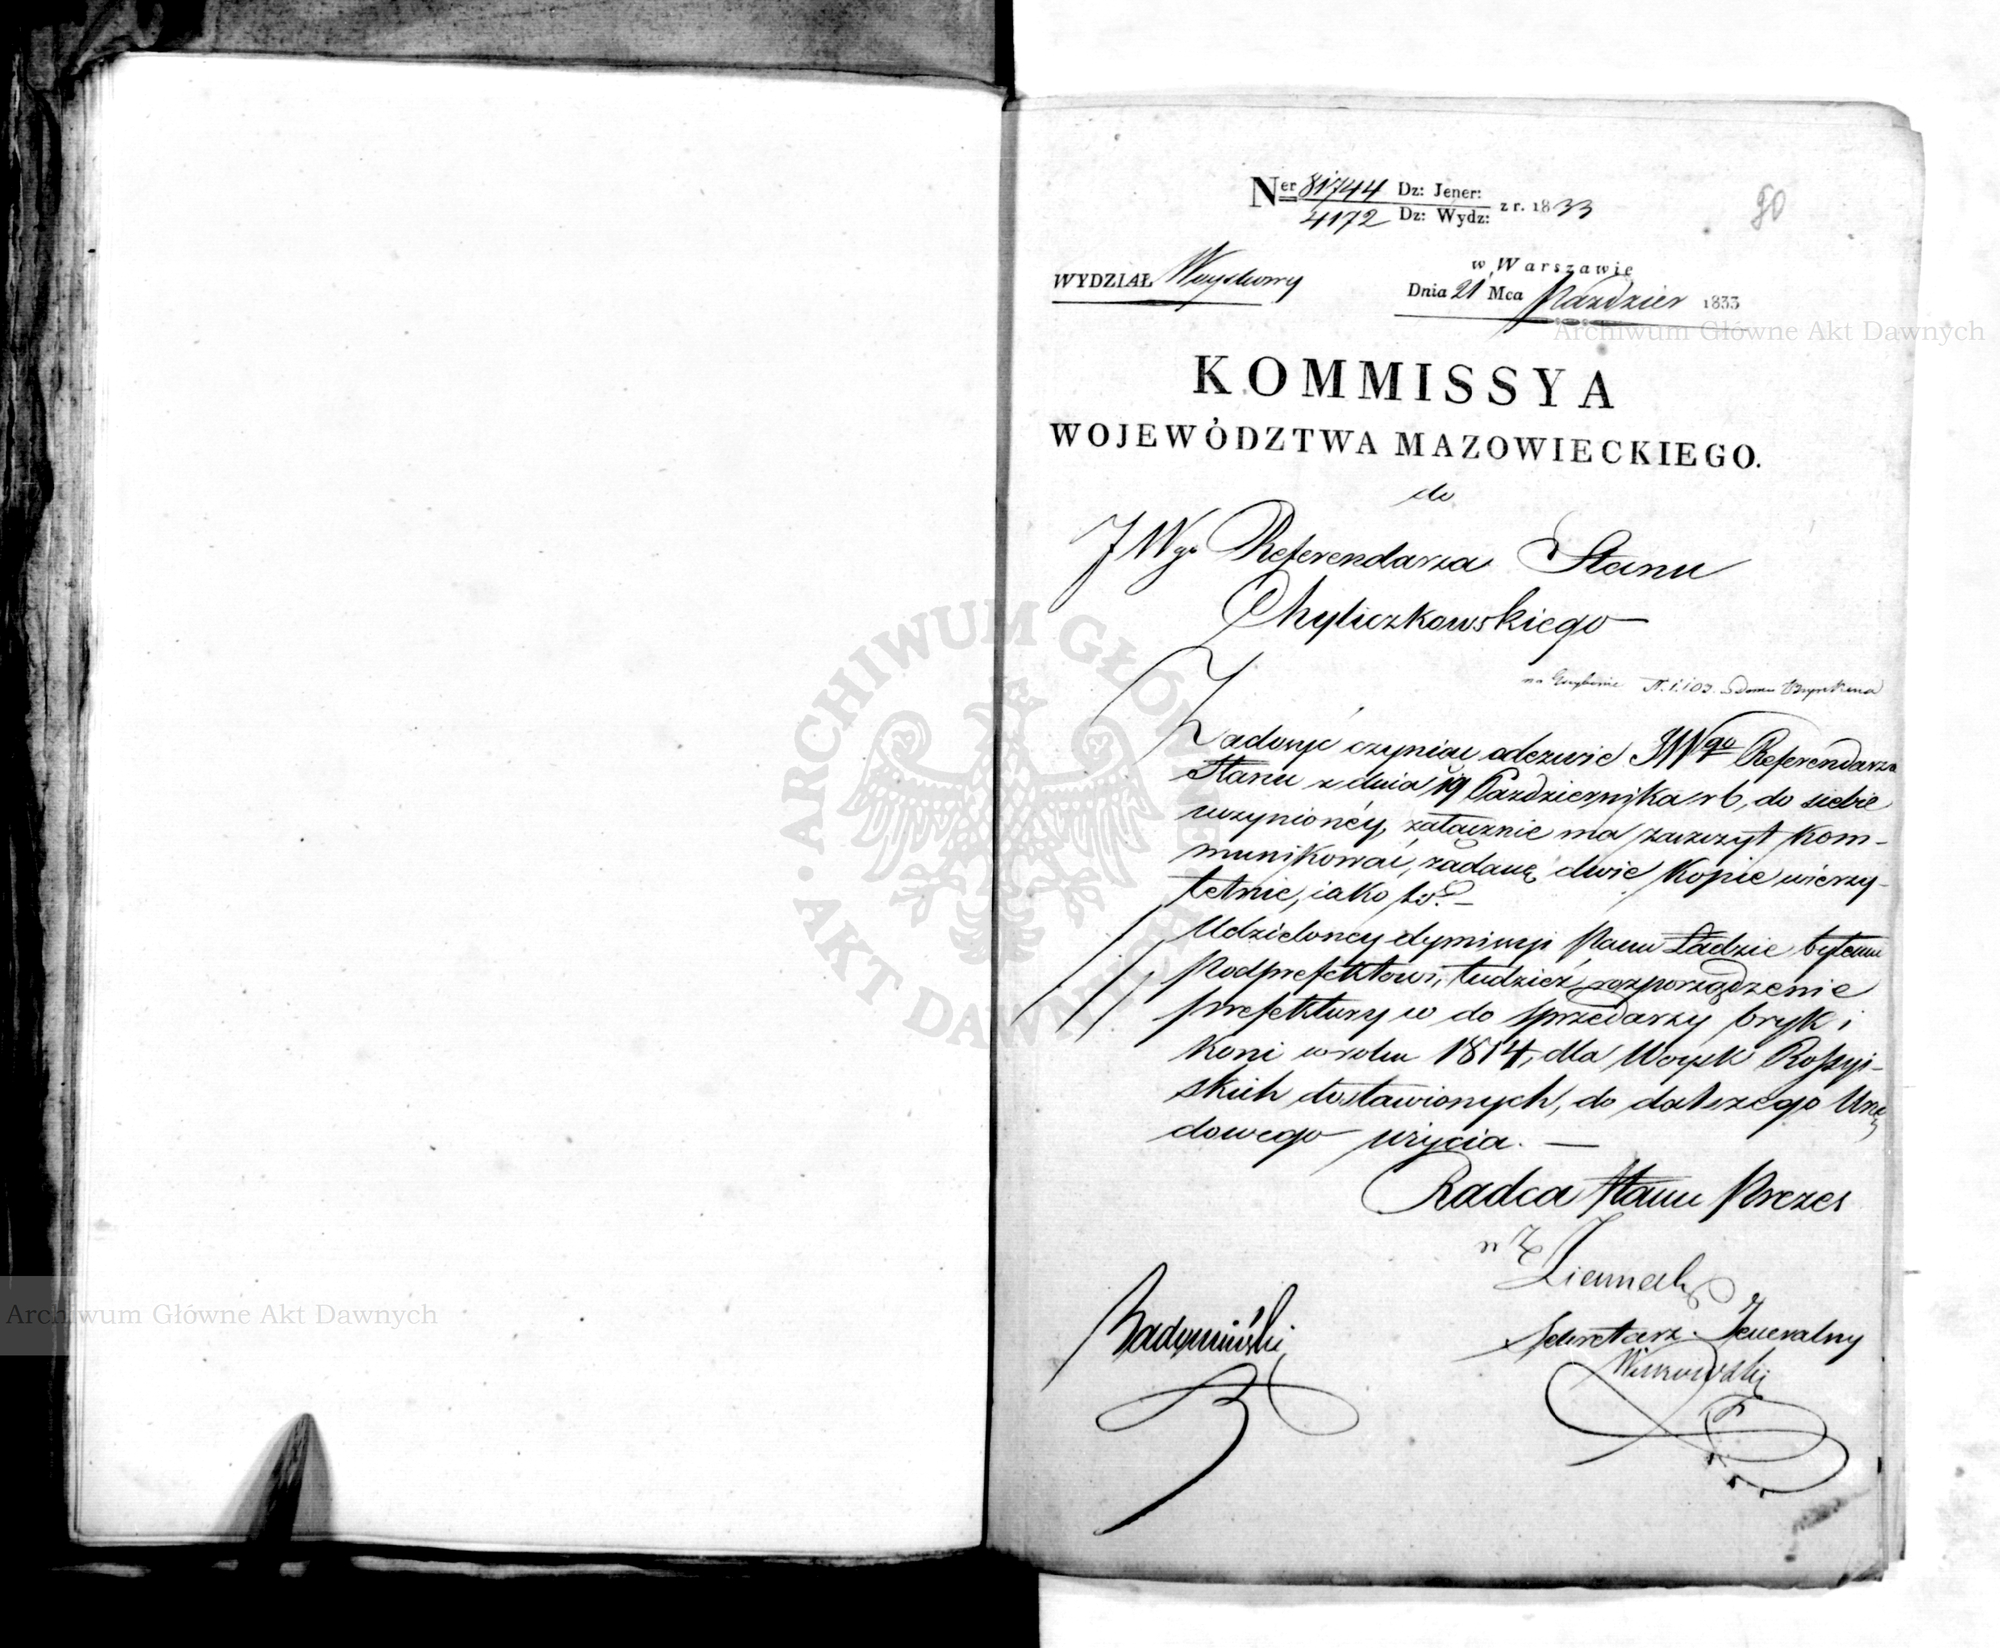 Ner 81744 Dz: Jener:
4172 Dz: Wydz: z r. 1833
90
w Warszawie
WYDZIAŁ Woyskowy
Dnia 21 Mca Paździer 1833
KOMMISSYA
WOJEWÓDZTWA MAZOWIECKIEGO.
do
JWgo Referendarza Stanu
Chyliczkowskiego
na Grzybowie N. 1103. w domu
Zadosyć czyniąc odezwie JWgo Referendarza
Stanu z dnia 19 Października r b, do siebie
uczynioney, załącznie ma zaszczyt kom-
munikować, żądane dwie kopie wierzy-
telnie, iako to:
Udzieloney dymissyi Panu Ładzie byłemu
Podprefektowi, tudzież rozporządzenie
prefektury w do sprzedarzy bryk i
koni w roku 1814, dla Woysk Rossyi-
skich dostawionych, do dalszego Urzę-
dowego użycia. —
Radca Stanu Prezes
w Z
Sekretarz Jeneralny
Archiwum Główne Akt Dawnych
Archiwum Główne Akt Dawnych
ARCHIWUM GŁÓWNE AKT DAWNYCH